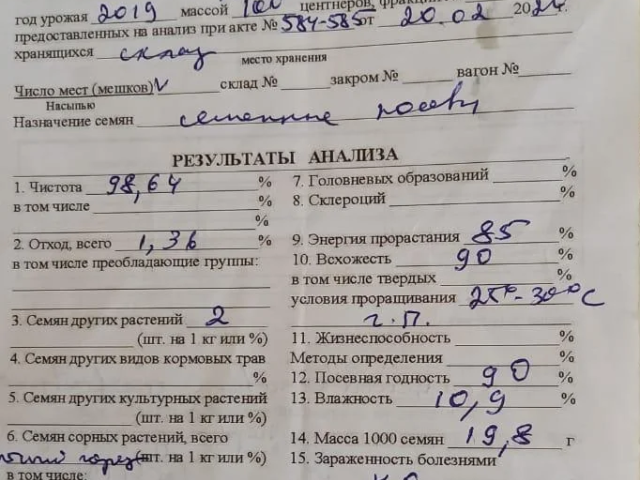 год урожая 2019 массой 100 центнеров, фракции
предоставленных на анализ при акте № 584-585 от 20.02 2024г.
хранящихся склад
место хранения
Число мест (мешков) V склад № закром № вагон №
Насыпью
Назначение семян семенные посевы
РЕЗУЛЬТАТЫ АНАЛИЗА
1. Чистота 98,64 %
в том числе %
%
2. Отход, всего 1,36 %
в том числе преобладающие группы:
3. Семян других растений 2
(шт. на 1 кг или %)
4. Семян других видов кормовых трав
%
5. Семян других культурных растений
(шт. на 1 кг или %)
6. Семян сорных растений, всего
(шт. на 1 кг или %)
в том числе:
7. Головневых образований %
8. Склероций %
9. Энергия прорастания 85 %
10. Всхожесть 90 %
в том числе твердых %
условия проращивания 25°-30°С
г.п.
11. Жизнеспособность %
Методы определения %
12. Посевная годность 90 %
13. Влажность 10,9 %
14. Масса 1000 семян 19,8 г
15. Зараженность болезнями